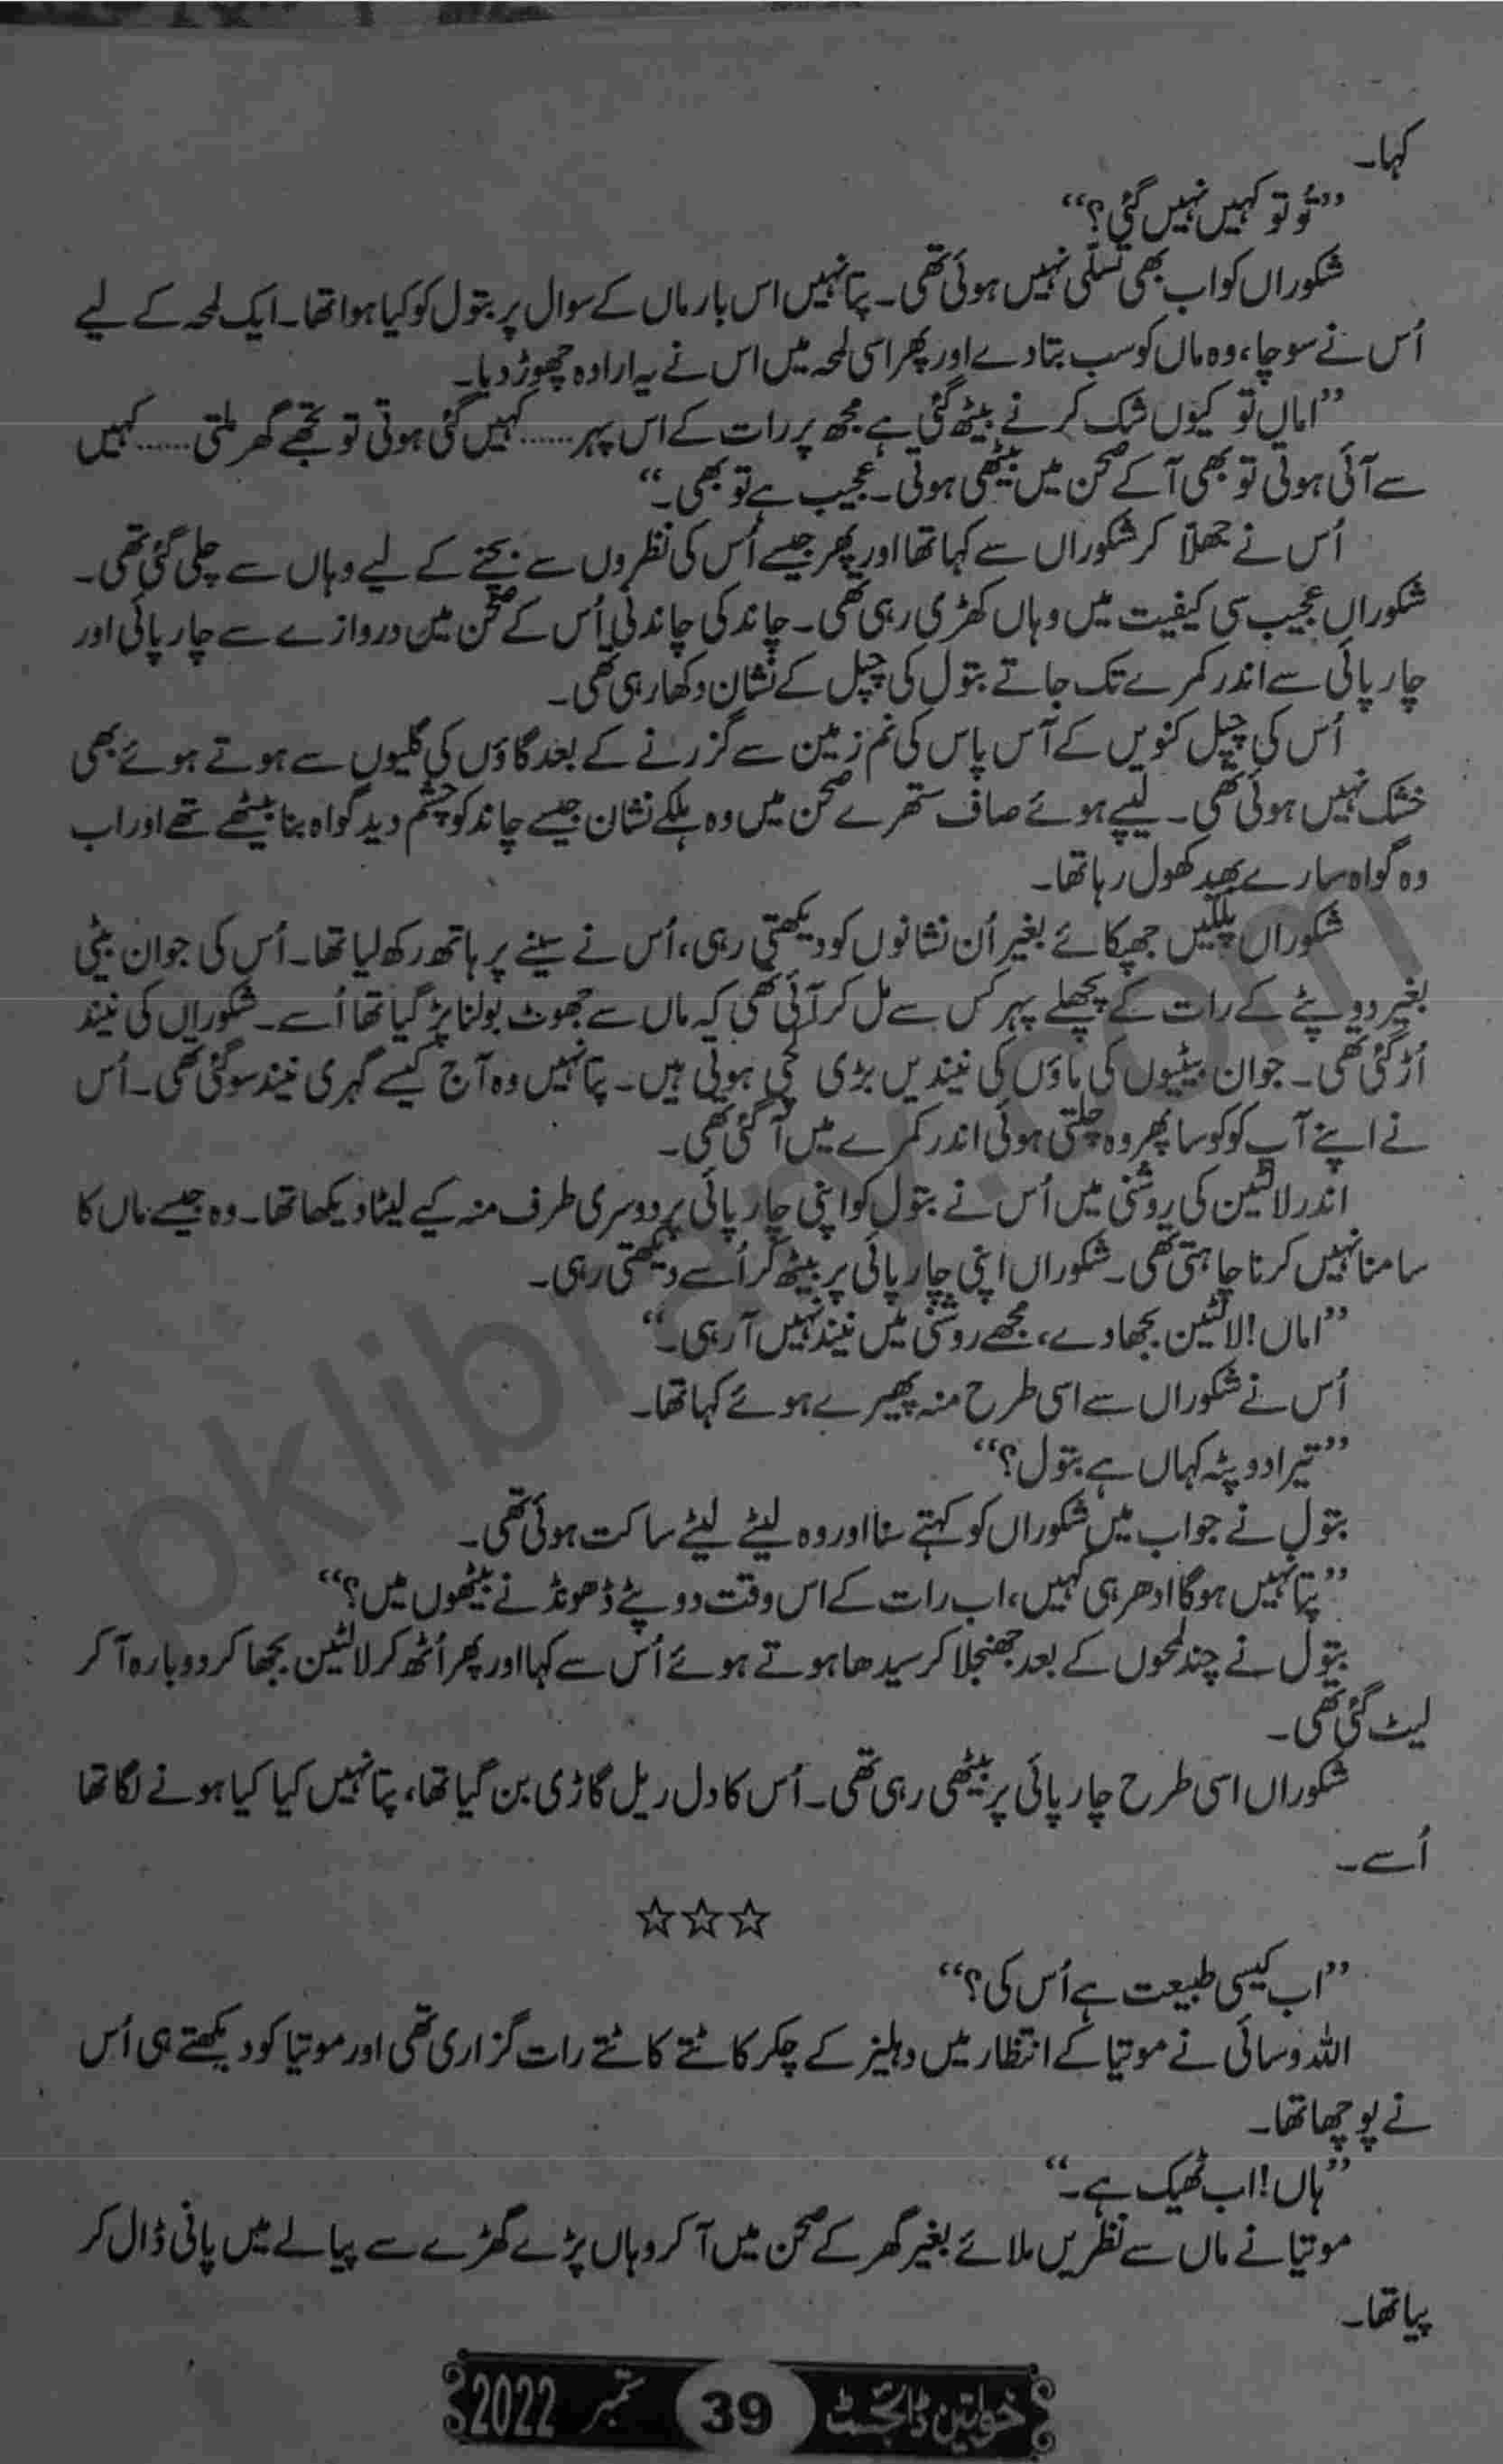 کہا۔
”تُو تو کہیں نہیں گئی؟“
شکوراں کو اب بھی تسلّی نہیں ہوئی تھی۔ پتا نہیں اس بار ماں کے سوال پر بتول کو کیا ہوا تھا۔ ایک لمحہ کے لیے
اُس نے سوچا، وہ ماں کو سب بتا دے اور پھر اسی لمحہ میں اس نے یہ ارادہ چھوڑ دیا۔
”اماں تو کیوں شک کرنے بیٹھ گئی ہے مجھ پر رات کے اس پہر……کہیں گئی ہوتی تو تجھے گھر ملتی……کہیں
سے آئی ہوتی تو بھی آ کے صحن میں بیٹھی ہوتی۔ عجیب ہے تو بھی۔“
اُس نے جھلّا کر شکوراں سے کہا تھا اور پھر جیسے اُس کی نظروں سے بچنے کے لیے وہاں سے چلی گئی تھی۔
شکوراں عجیب سی کیفیت میں وہاں کھڑی رہی تھی۔ چاند کی چاندنی اُس کے صحن میں دروازے سے چارپائی اور
چارپائی سے اندر کمرے تک جاتے بتول کی چپل کے نشان دکھا رہی تھی۔
اُس کی چپل کنویں کے آس پاس کی نم زمین سے گزرنے کے بعد گاؤں کی گلیوں سے ہوتے ہوئے بھی
خشک نہیں ہوئی تھی۔ لیپے ہوئے صاف ستھرے صحن میں وہ ہلکے نشان جیسے چاند کو چشم دید گواہ بنا بیٹھے تھے اور اب
وہ گواہ سارے بھید کھول رہا تھا۔
شکوراں پلکیں جھپکائے بغیر اُن نشانوں کو دیکھتی رہی، اُس نے سینے پر ہاتھ رکھ لیا تھا۔ اُس کی جوان بیٹی
بغیر دوپٹے کے رات کے پچھلے پہر کس سے مل کر آئی تھی کہ ماں سے جھوٹ بولنا پڑ گیا تھا اُسے۔ شکوراں کی نیند
اُڑ گئی تھی۔ جوان بیٹیوں کی ماؤں کی نیندیں بڑی کچی ہوتی ہیں۔ پتا نہیں وہ آج کیسے گہری نیند سو گئی تھی۔ اُس
نے اپنے آپ کو کوسا پھر وہ چلتی ہوئی اندر کمرے میں آ گئی تھی۔
اندر لالٹین کی روشنی میں اُس نے بتول کو اپنی چارپائی پر دوسری طرف منہ کیے لیٹا دیکھا تھا۔ وہ جیسے ماں کا
سامنا نہیں کرنا چاہتی تھی۔ شکوراں اپنی چارپائی پر بیٹھ کر اُسے دیکھتی رہی۔
”اماں! لالٹین بجھا دے، مجھے روشنی میں نیند نہیں آ رہی۔“
اُس نے شکوراں سے اسی طرح منہ پھیرے ہوئے کہا تھا۔
”تیرا دوپٹہ کہاں ہے بتول؟“
بتول نے جواب میں شکوراں کو کہتے سنا اور وہ لیٹے لیٹے ساکت ہوئی تھی۔
”پتا نہیں ہوگا ادھر ہی کہیں، اب رات کے اس وقت دوپٹے ڈھونڈنے بیٹھوں میں؟“
بتول نے چند لمحوں کے بعد جھنجلا کر سیدھا ہوتے ہوئے اُس سے کہا اور پھر اُٹھ کر لالٹین بجھا کر دوبارہ آ کر
لیٹ گئی تھی۔
شکوراں اسی طرح چارپائی پر بیٹھی رہی تھی۔ اُس کا دل ریل گاڑی بن گیا تھا، پتا نہیں کیا کیا ہونے لگا تھا
اُسے۔
☆☆☆
”اب کیسی طبیعت ہے اُس کی؟“
اللہ وسائی نے موتیا کے انتظار میں دہلیز کے چکر کاٹتے کاٹتے رات گزاری تھی اور موتیا کو دیکھتے ہی اُس
نے پوچھا تھا۔
”ہاں! اب ٹھیک ہے۔“
موتیا نے ماں سے نظریں ملائے بغیر گھر کے صحن میں آ کر وہاں پڑے گھڑے سے پیالے میں پانی ڈال کر
پیا تھا۔
خواتین ڈائجسٹ 39 ستمبر 2022
pklibrary.com